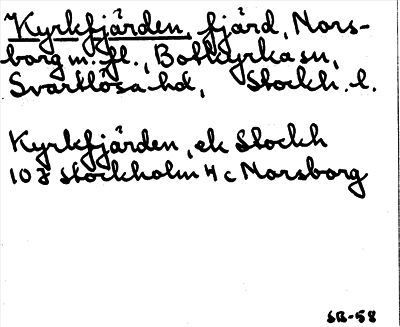 Kyrkfjärden, fjärd, Nors-
borg m. fl., Botkyrka sn,
Svartlösa hd, Stockh. l.
Kyrkfjärden, ek Stockh
10J Stockholm 4c Norsborg
SB-58